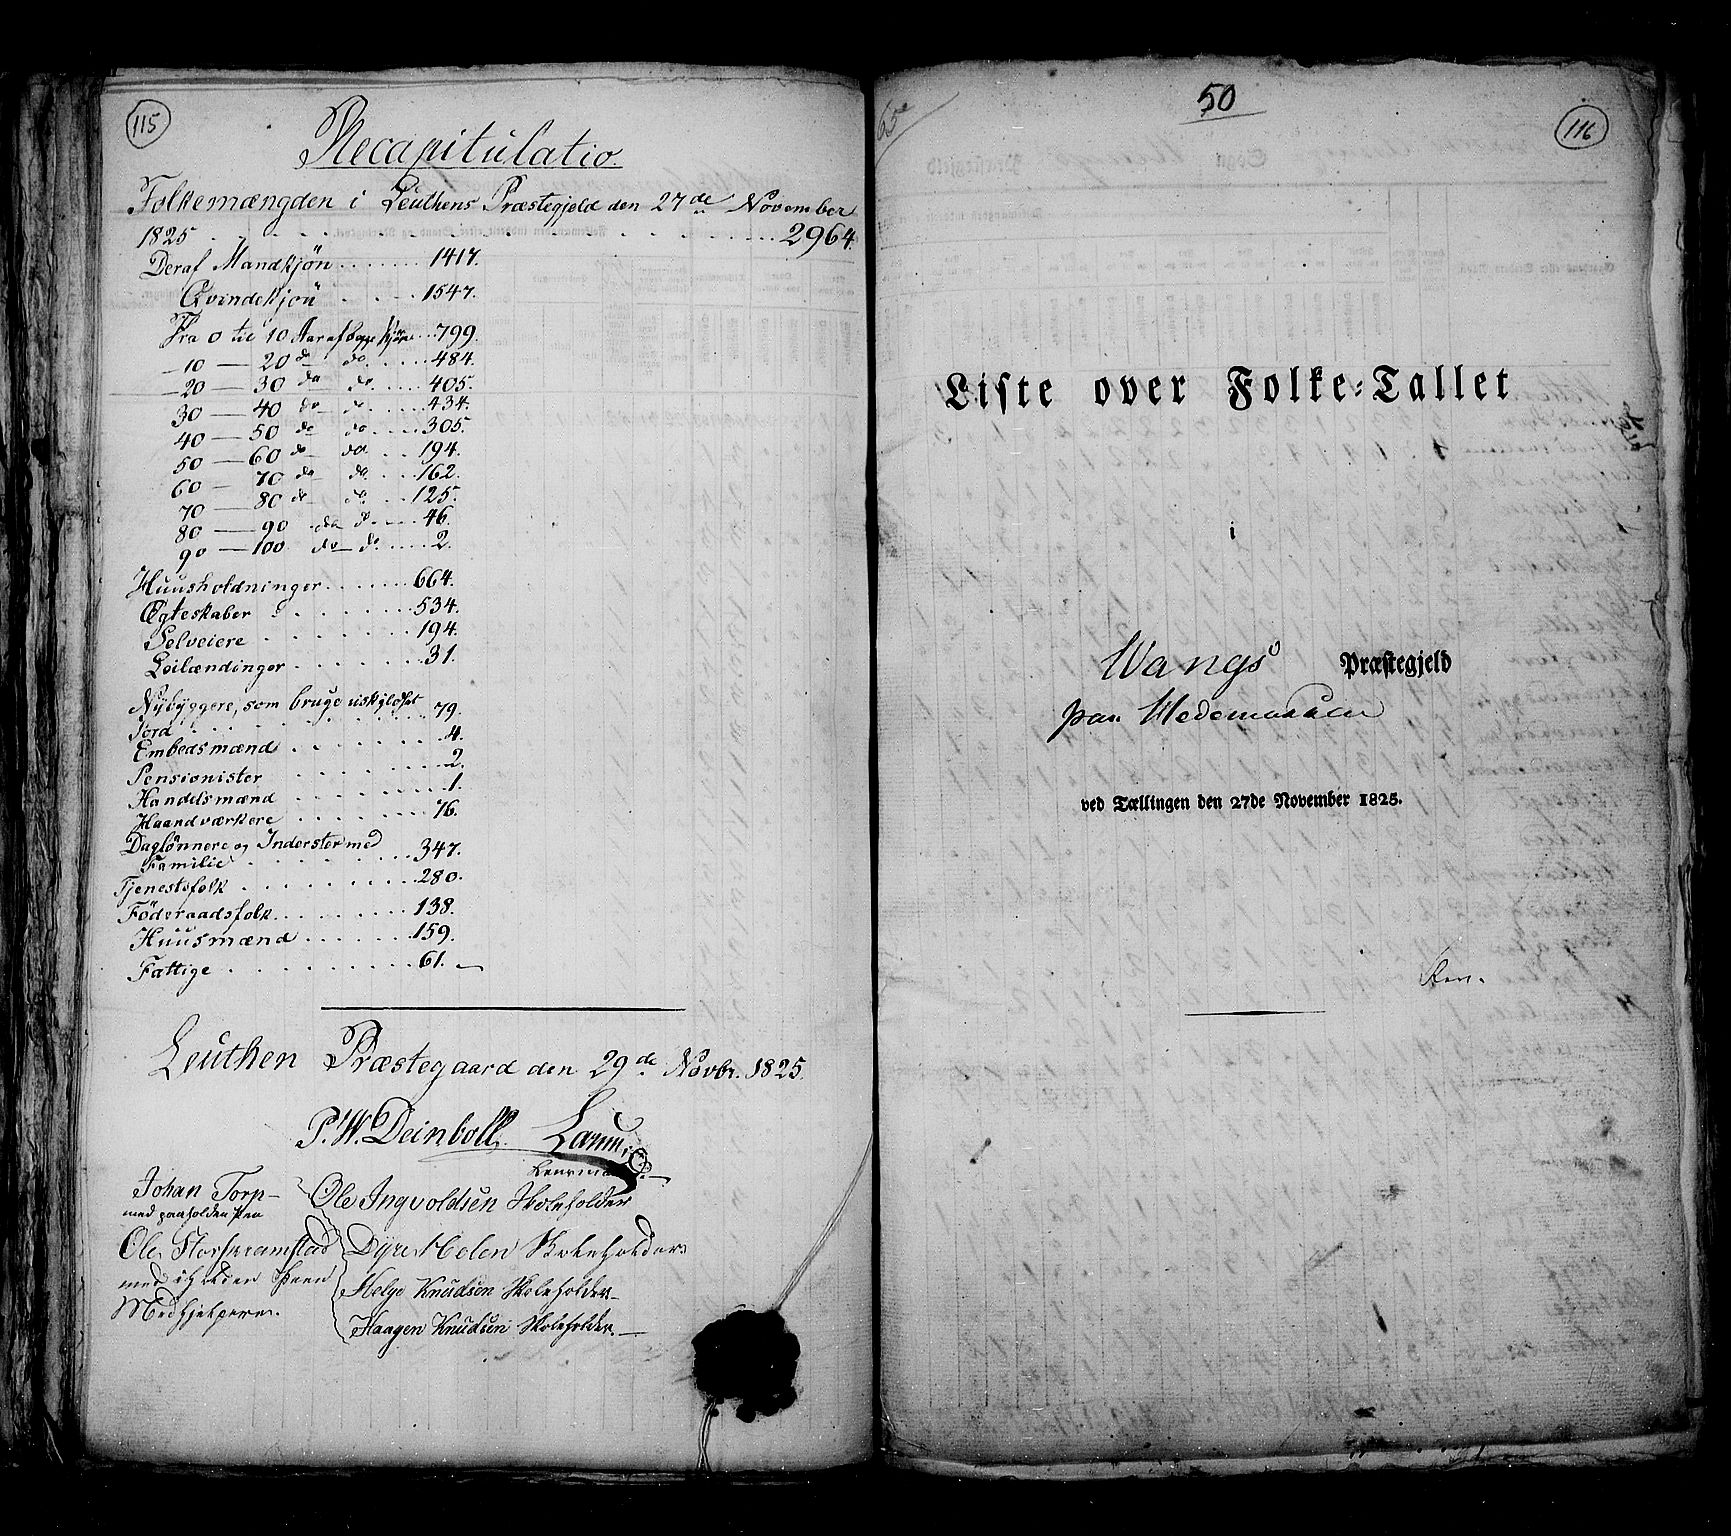 115
Recapitulatio.
Folkemængden i Leuthens Præstegjeld den 27de November
1825 . . . 2964.
Deraf Mandkjön . . . 1417.
Qvindekjön . . . 1547.
Fra 0 til 10 Aar af begge Kjön . . . 799.
10 — 20 do do . . . 484.
20 — 30 do do . . . 405.
30 — 40 do do . . . 434.
40 — 50 do do . . . 305.
50 — 60 do do . . . 194.
60 — 70 do do . . . 162.
70 — 80 do do . . . 125.
80 — 90 do do . . . 46.
90 — 100 do do . . . 2.
Huusholdninger . . . 664.
Ægteskaber . . . 534.
Selveiere . . . 194.
Leilændinger . . . 31.
Nybyggere, som bruge uskyldsat
Jord . . . 79.
Embedsmænd . . . 4.
Pensionister . . . 2.
Handelsmænd . . . 1.
Haandværkere . . . 76.
Daglönnere og Inderster med
Familie . . . 347.
Tjenestefolk . . . 280.
Föderaadsfolk . . . 138.
Huusmænd . . . 159.
Fattige . . . 61.
Leuthen Præstegaard den 29de Novbr. 1825.
P. W. Deinboll.
Lensmand
Johan Torp
med paaholden Pen
Ole Storhramstad
med iholden Peen
Medhjelpere.
Ole Ingvoldsen Skoleholder
Dyre Skoleholder
Helge Knudsen Skoleholder
Haagen Knudsen Skoleholder.
50
116
Liste over Folke-Tallet
i
Wangs Præstegjeld
paa Hedemarken
ved Tællingen den 27de November 1825.